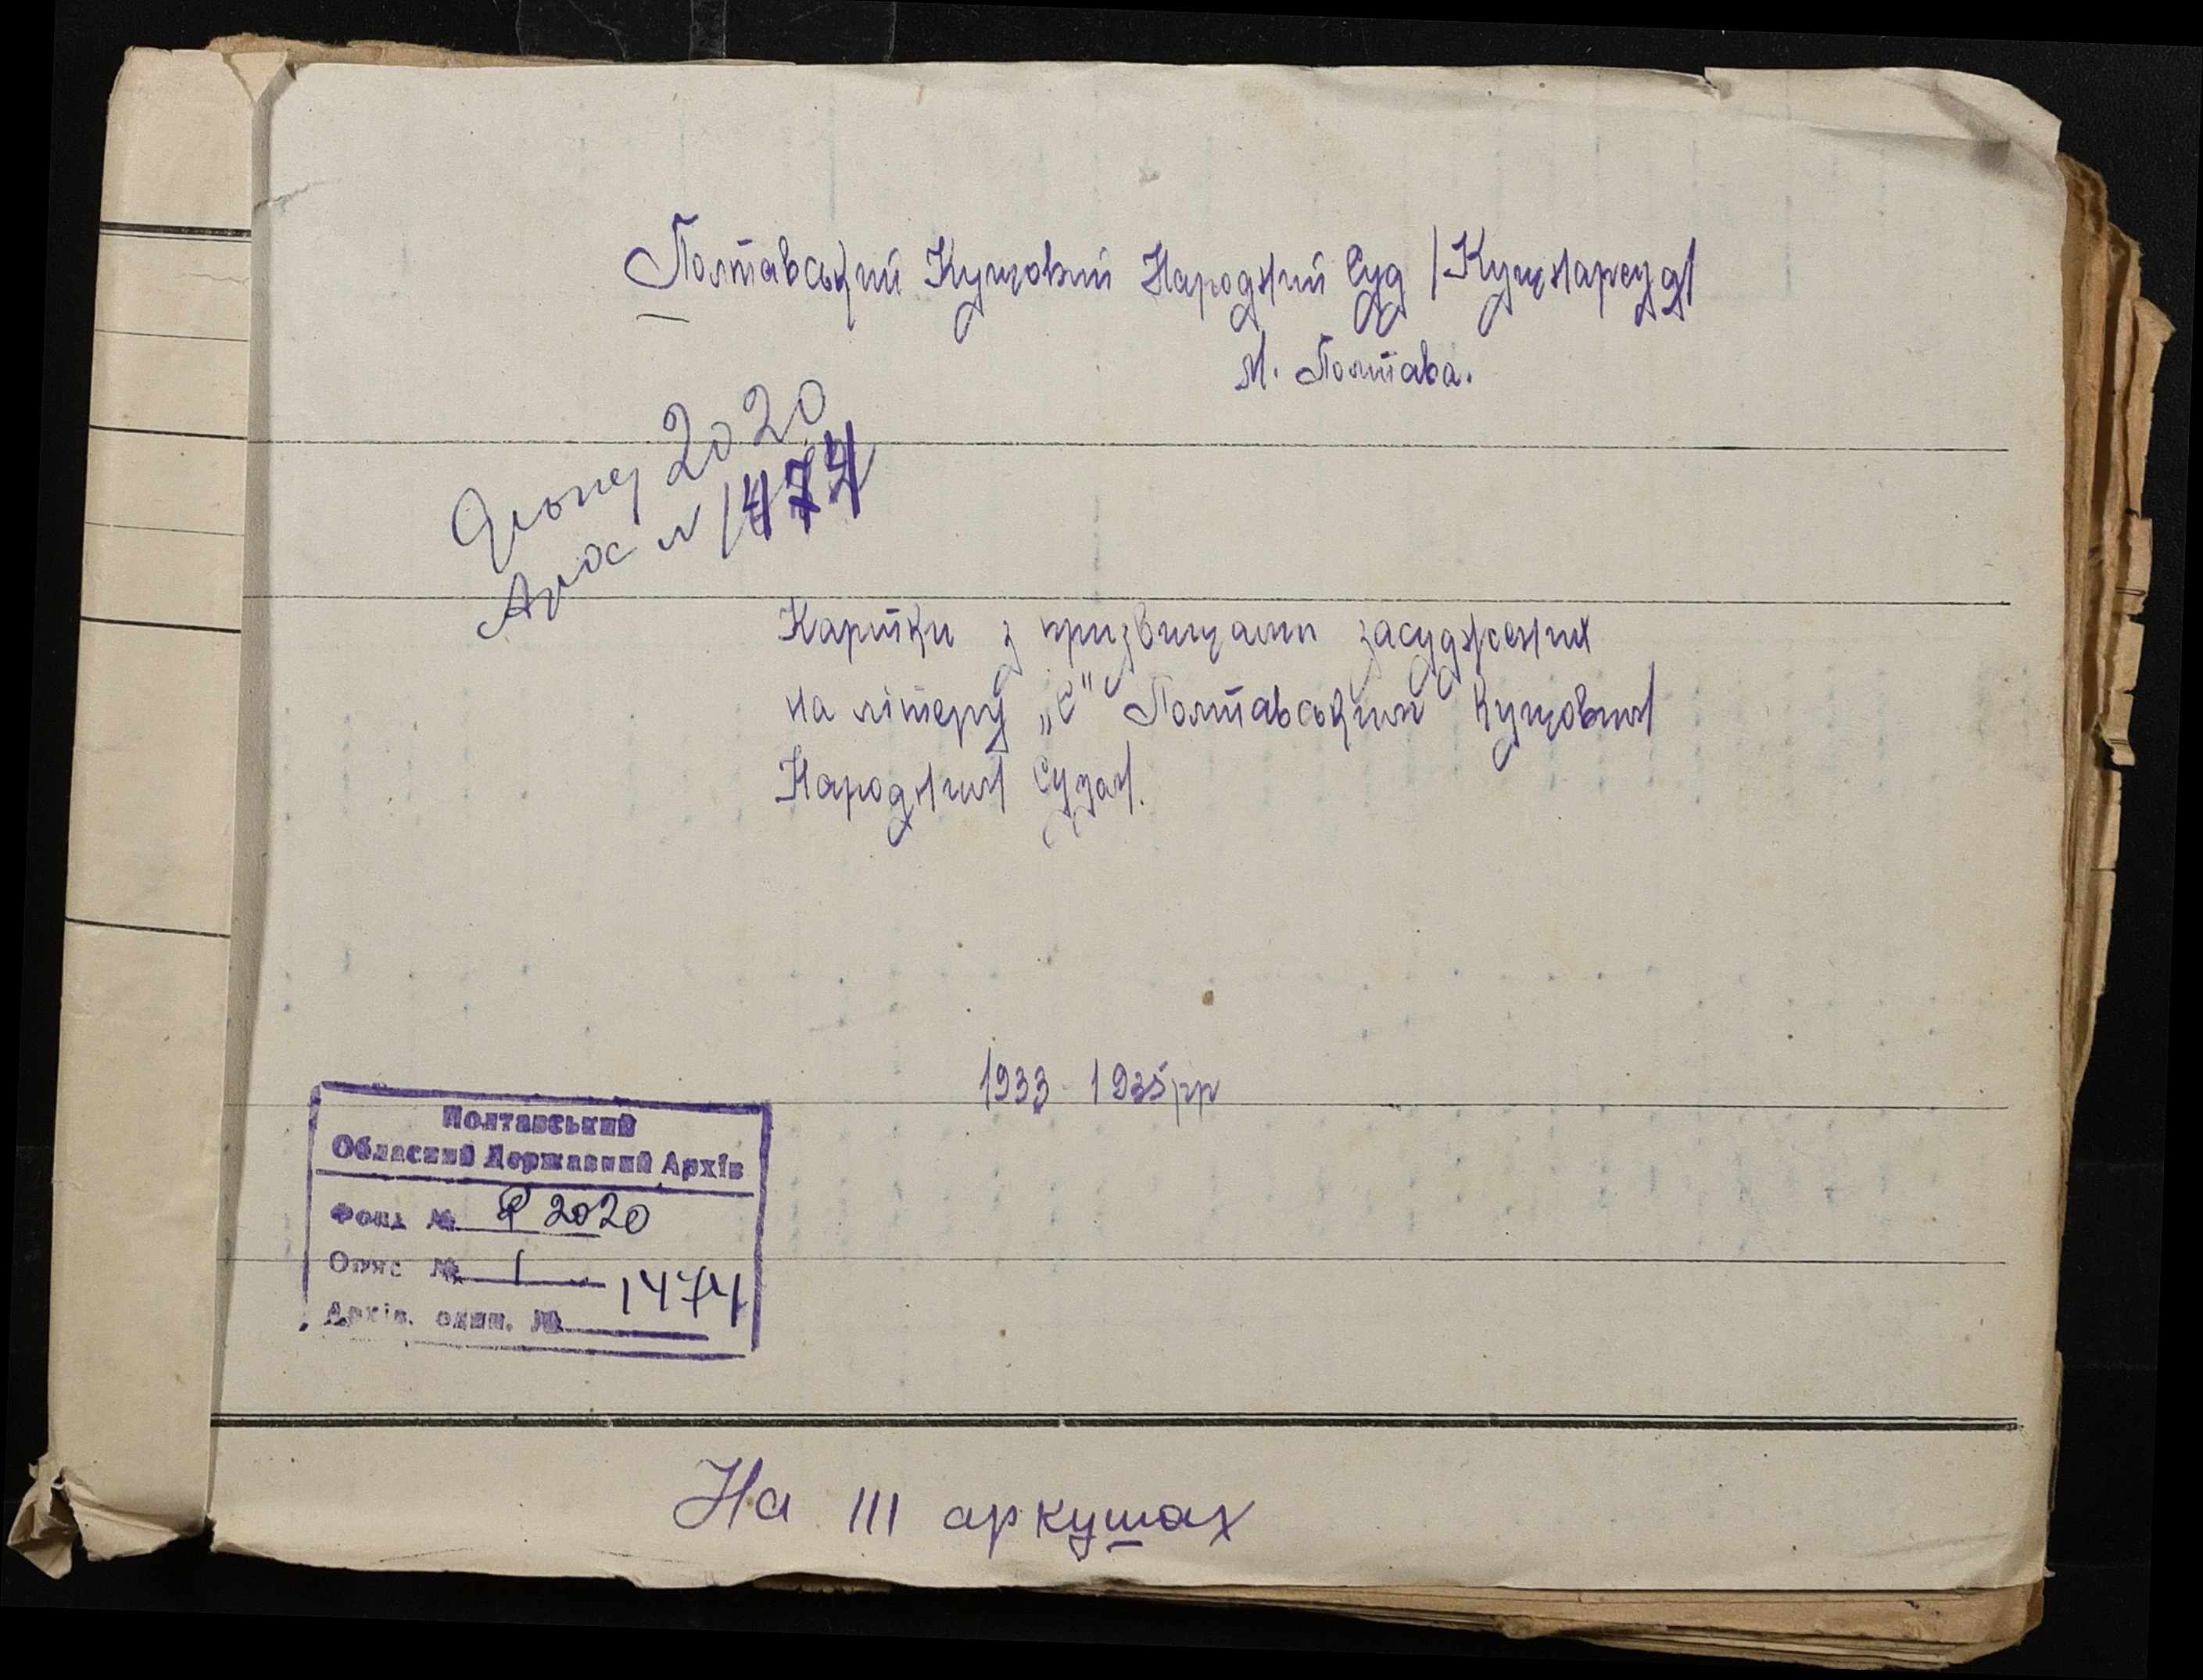 Полтавський Кущовий Народний Суд /Кущнарсуд/
м. Полтава.
Фонд 2020
Арх № 1474
Картки з призвищами засуджених
на літеру „С" Полтавським Кущовим
Народним Судом.
1933 - 1935 рр
Полтавський
Обласний Державний Архів
Фонд № Р 2020
Опис № 1
Архів. один. № 1474
На 111 аркушах